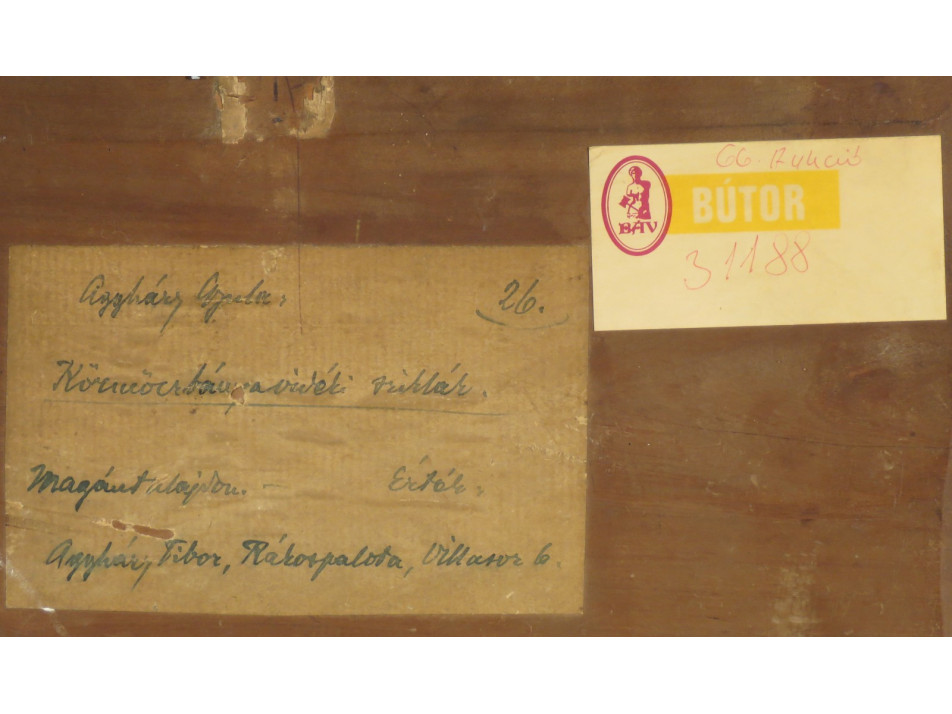 66. Aukció
BÁV
BÚTOR
31188
Aggházy Gyula. 26.
Körmöczbánya vidéki sziklák.
Magántulajdon. - Érték.
Aggházy Tibor, Rákospalota, Villasor 6.